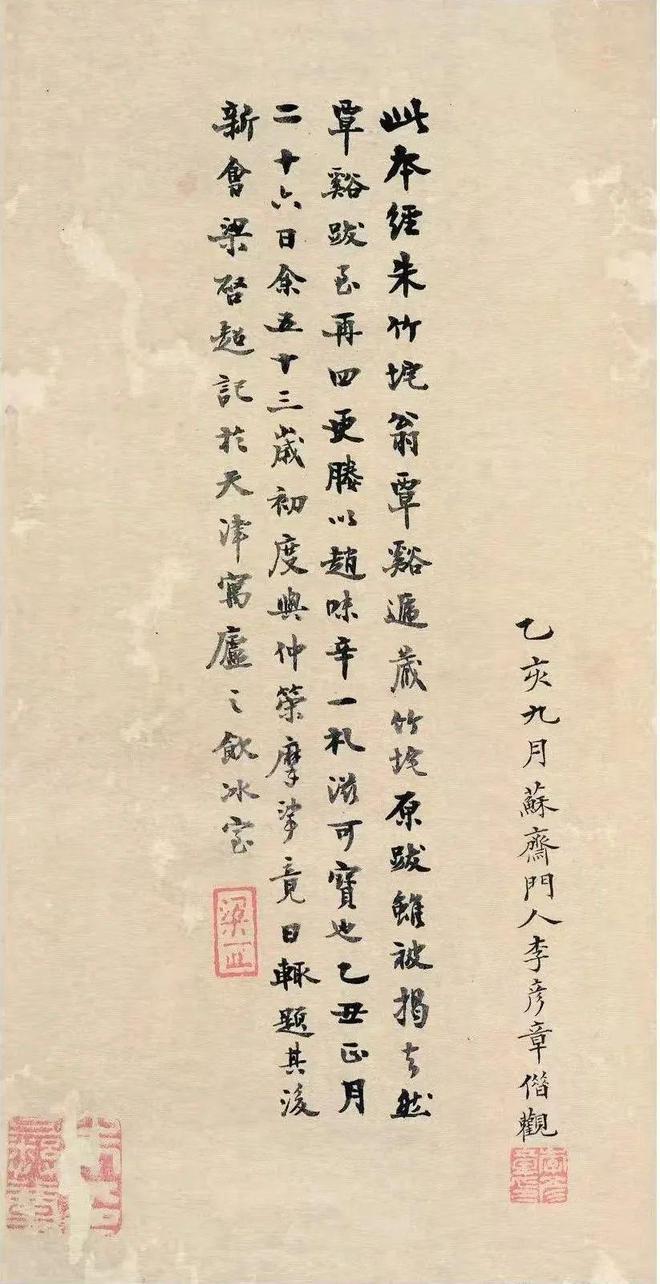 乙亥九月蘇齋門人李彥章偕觀
此本經朱竹垞翁覃谿遞藏竹垞原跋雖被揭去然
覃谿跋至再四更媵以趙味辛一札滋可寶也乙丑正月
二十六日余五十三歲初度與仲策摩挲竟日輒題其後
新會梁啓超記於天津寓廬之飲冰室